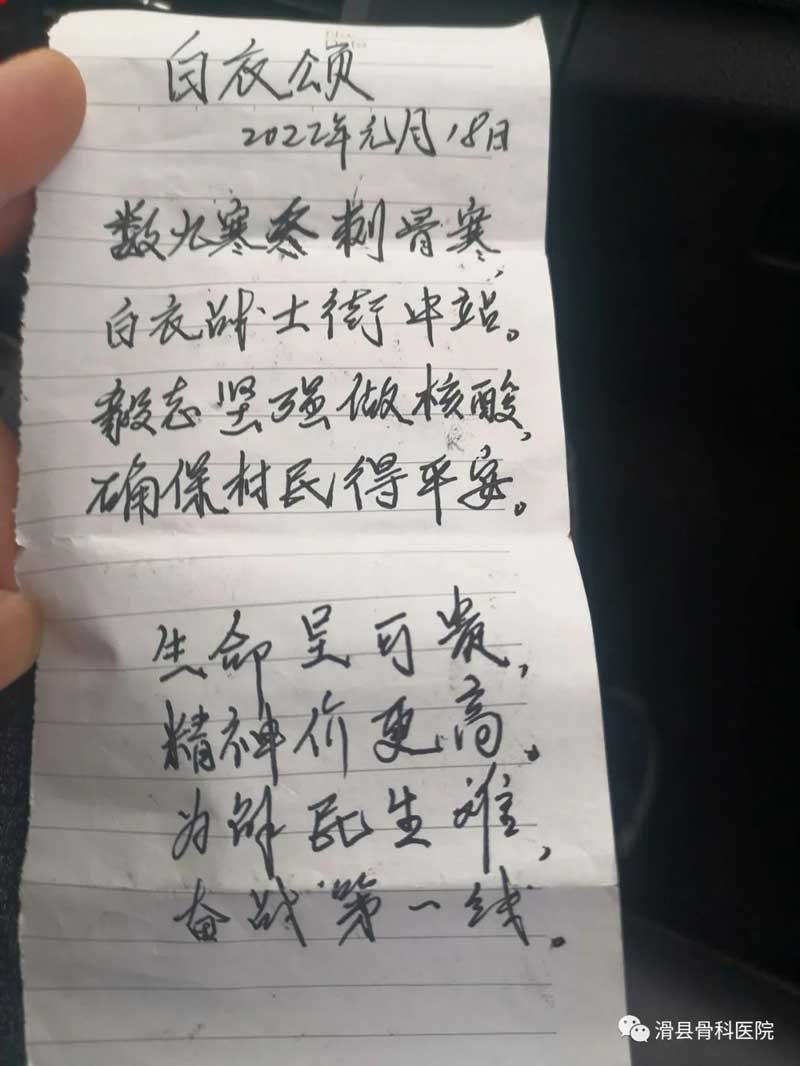 白衣颂
2022年元月18日
数九寒冬刺骨寒,
白衣战士街中站。
毅志坚强做核酸,
确保村民得平安。
生命呈可贵,
精神价更高.
为解民生难,
奋战第一线.
滑县骨科医院